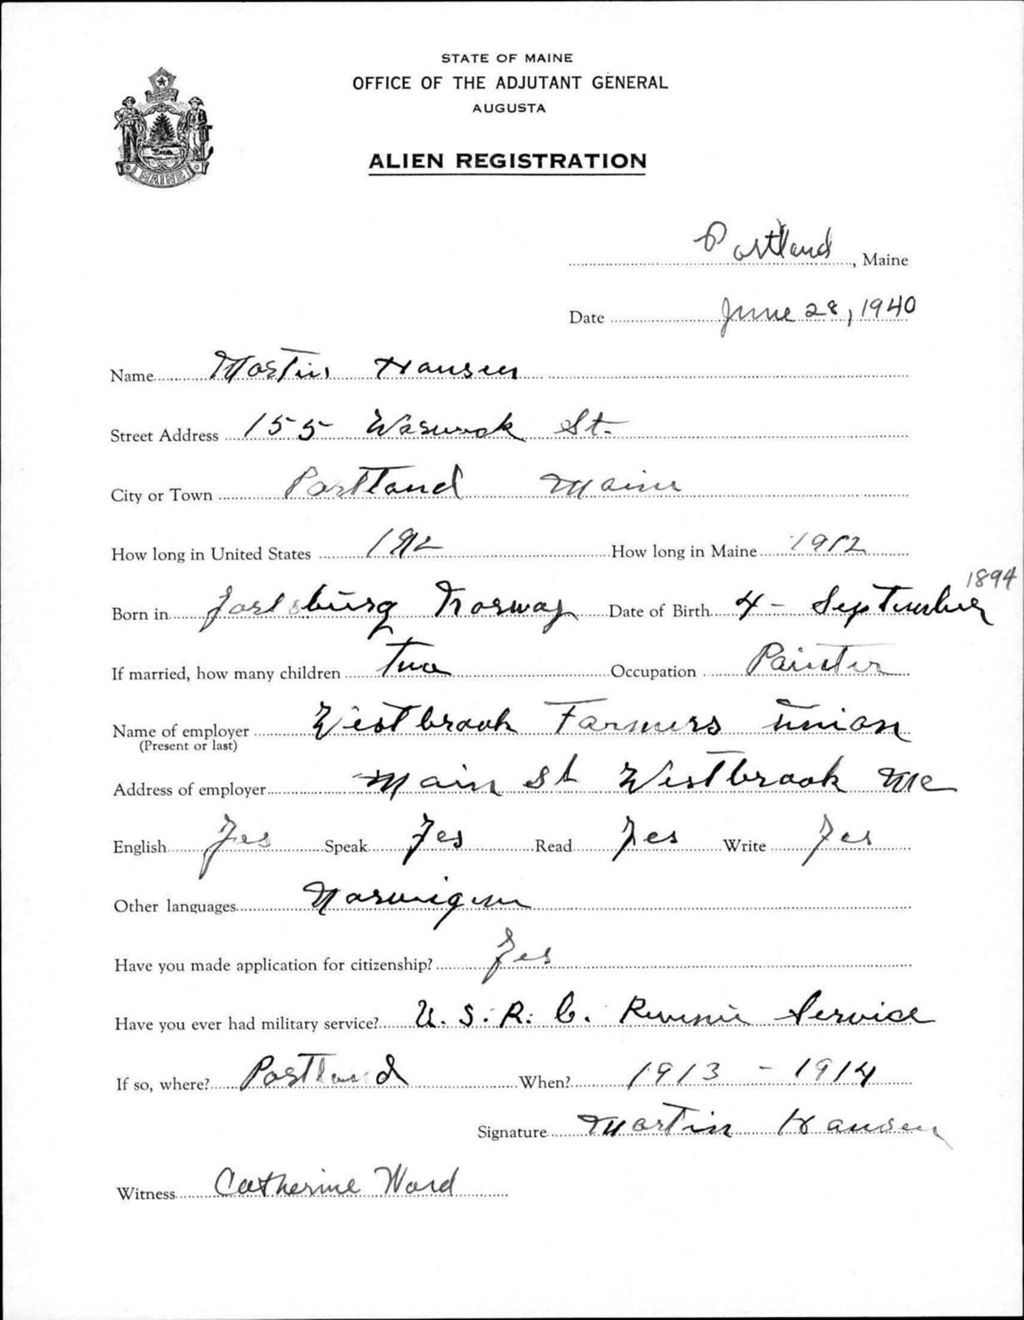 STATE OF MAINE
OFFICE OF THE ADJUTANT GENERAL
AUGUSTA
MAINE
ALIEN REGISTRATION
Portland, Maine
Date June 28, 1940
Name Martin Hansen
Street Address 155 Warwick St.
City or Town Portland Maine
How long in United States 1912 How long in Maine 1912
1894
Born in Norway Date of Birth 4 - September
If married, how many children two Occupation Painter
Name of employer Westbrook Farmers Union
(Present or last)
Address of employer Main St Westbrook Me
English Yes Speak Yes Read Yes Write Yes
Other languages Norwigen
Have you made application for citizenship? Yes
Have you ever had military service? U.S.R.C. Revenue Service
If so, where? Portland When? 1913 - 1914
Signature Martin Hansen
Witness Catherine Ward